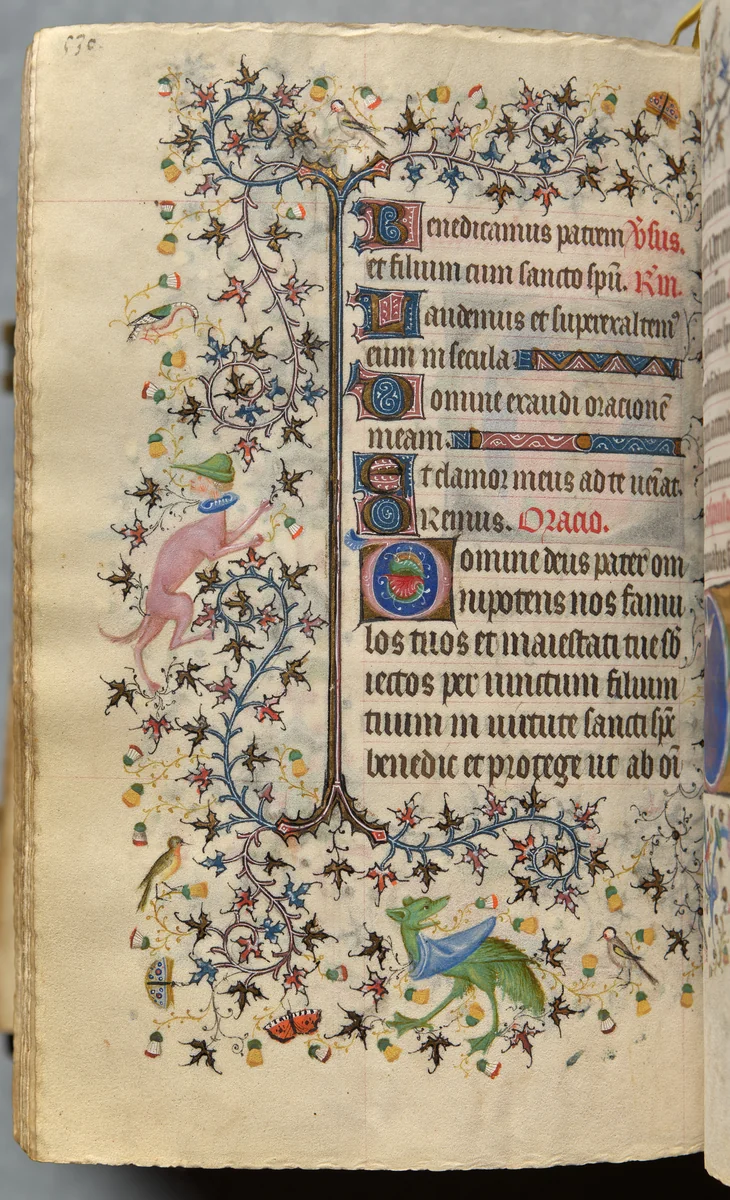 530.
Benedicamus patrem Vsus.
et filium cum sancto spu. Rm.
Laudemus et superexaltem9
eum in secula
Domine exaudi oracionē
meam.
Et clamor meus ad te ueīat.
Oremus. Oracio.
Domine deus pater om
nipotens nos famu
los tuos et maiestati tue sb
iectos per unictum filium
tuum in uirtute sancti spc
benedic et protege ut ab oi